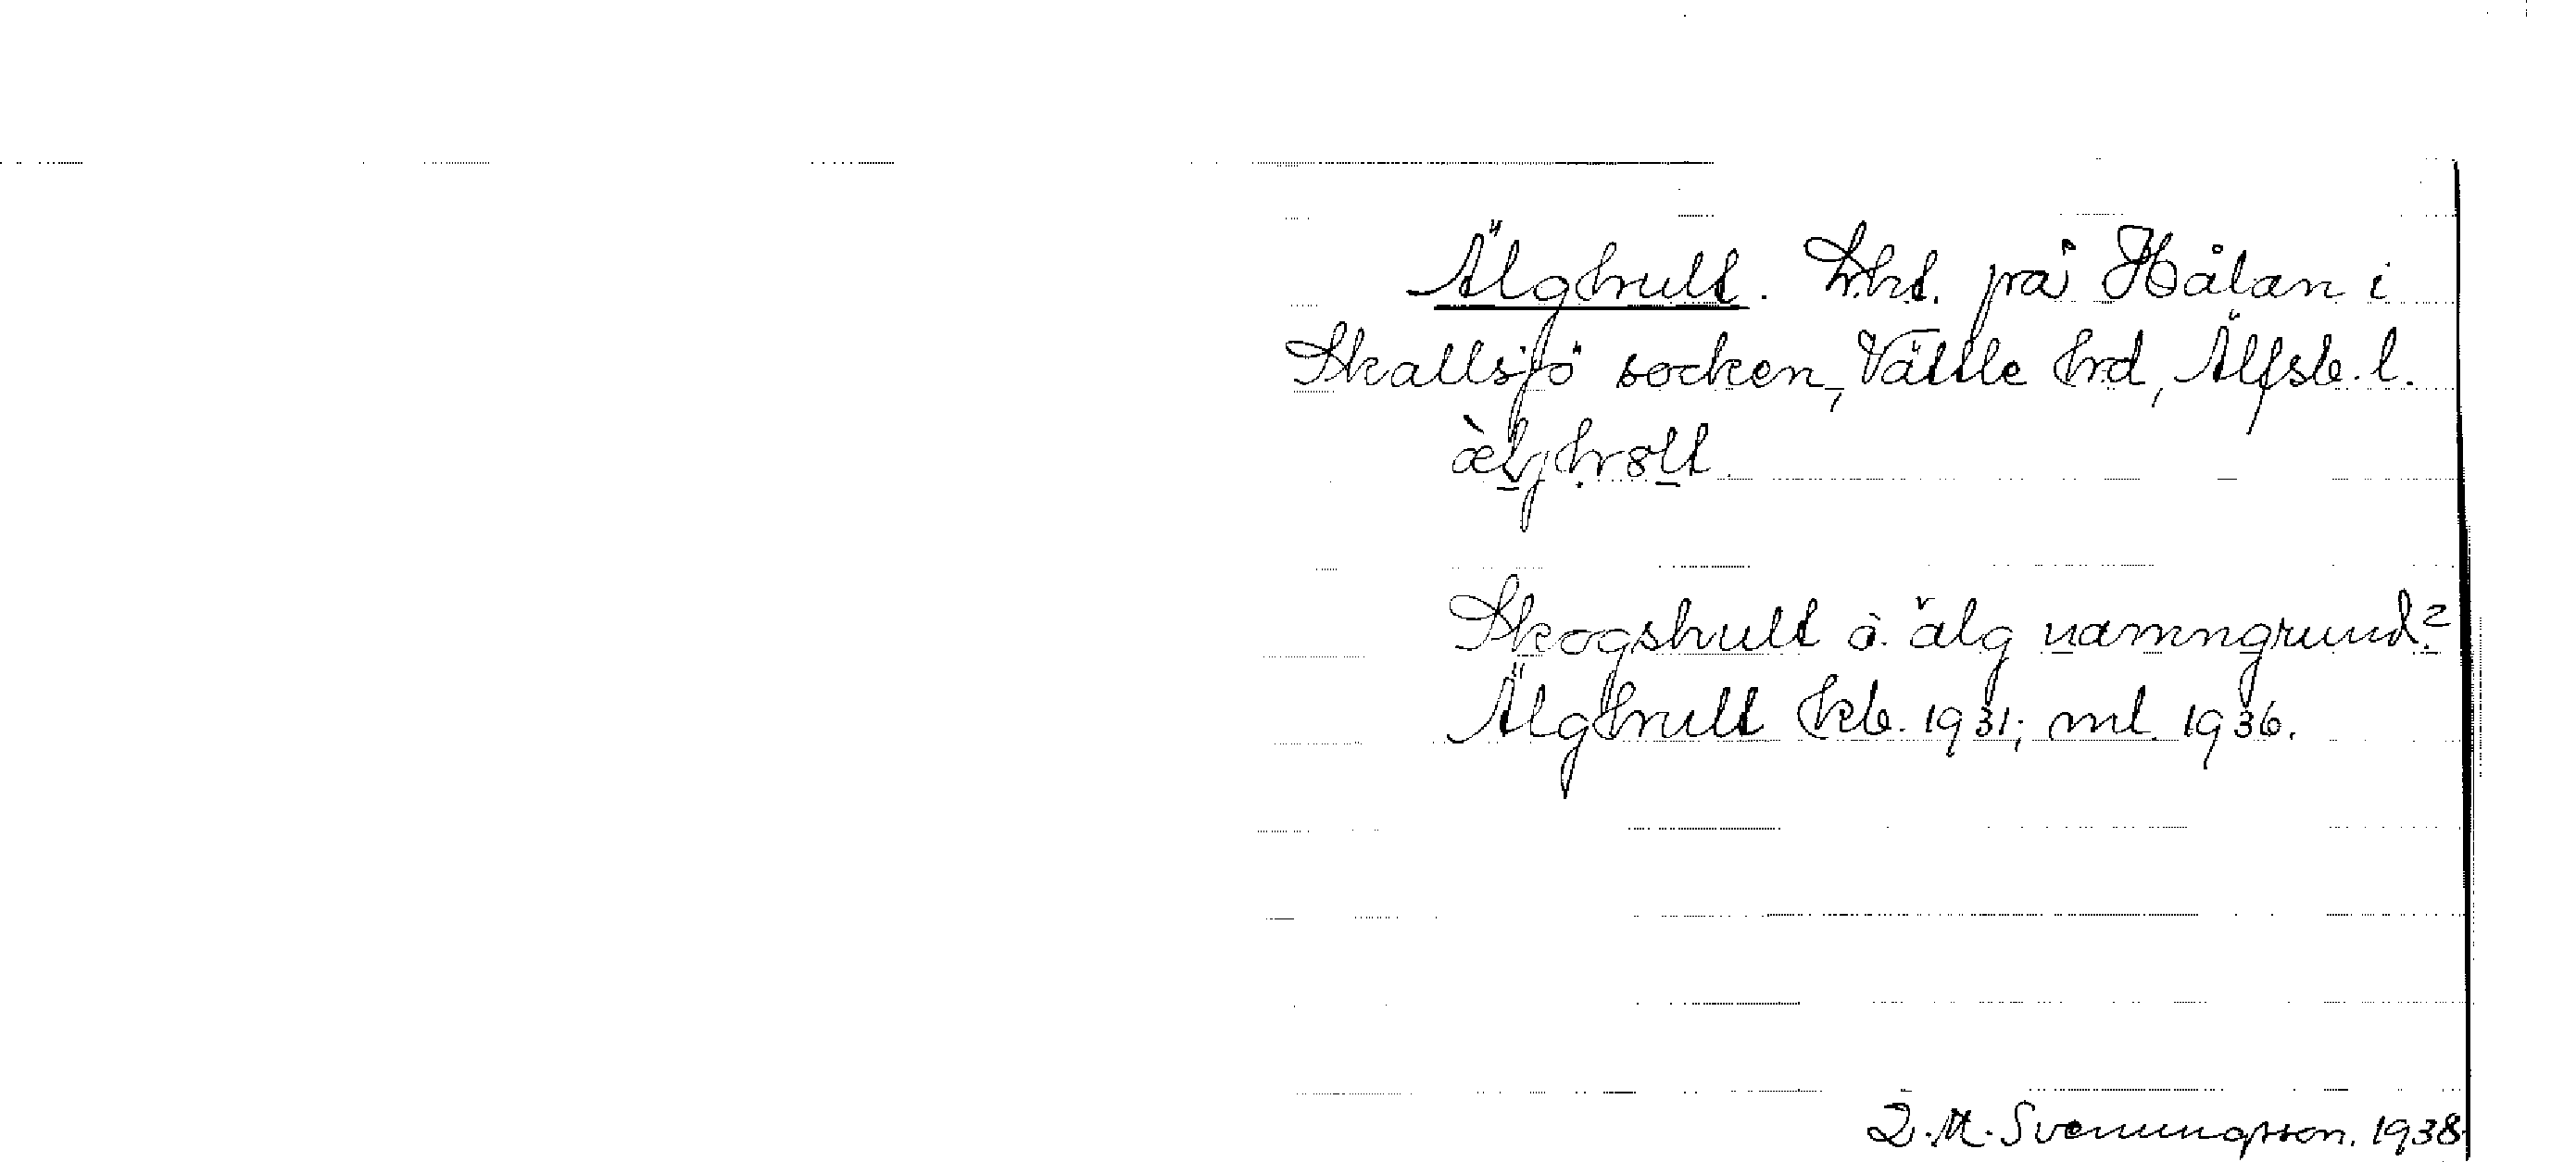 Älghult. Lht. på Hålan i
Skallsjö socken, Vättle hrd, Älfsb. l.
Skogshult o. älg namngrund?
Älghult kb. 1931; ml. 1936.
Svenningsson. 1938